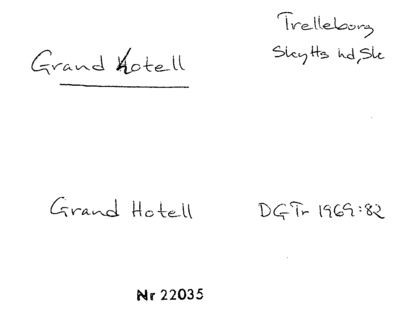 Trelleborg
Skytts hd, Sk
Grand Hotell
Grand Hotell DGTr 1969:82
Nr 22035